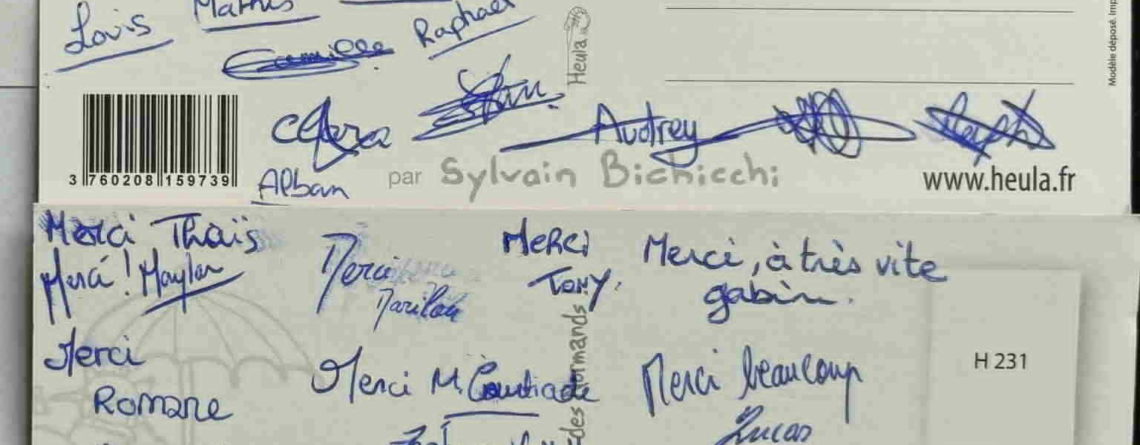 Louis
Mathis
Raphael
Camille
Heula
Modèle déposé.
Clara
Audrey
3 760208 159739
Alban
par Sylvain Bichicchi
www.heula.fr
Merci Thaïs
Merci ! Maylan
Merci
Marilou
MeRci
TONY.
Merci, à très vite
gabin.
Merci
Romane
Merci M.
des normands
Merci beaucoup
Lucas
H 231